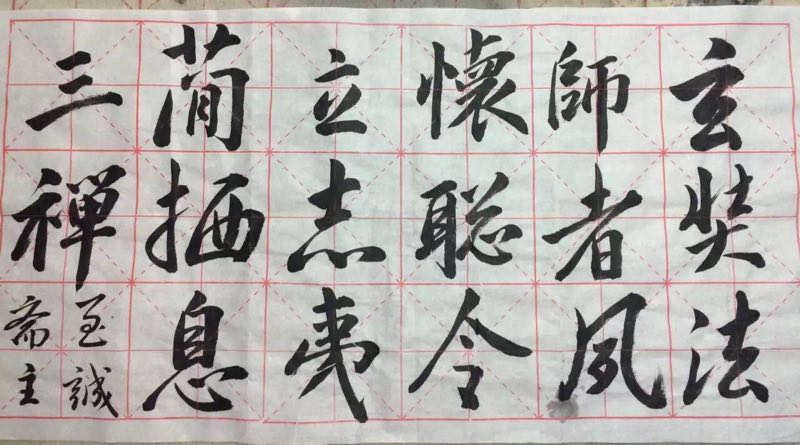 玄奘法
師者夙
懷聪令
立志夷
簡栖息
三禪
至誠
斋主